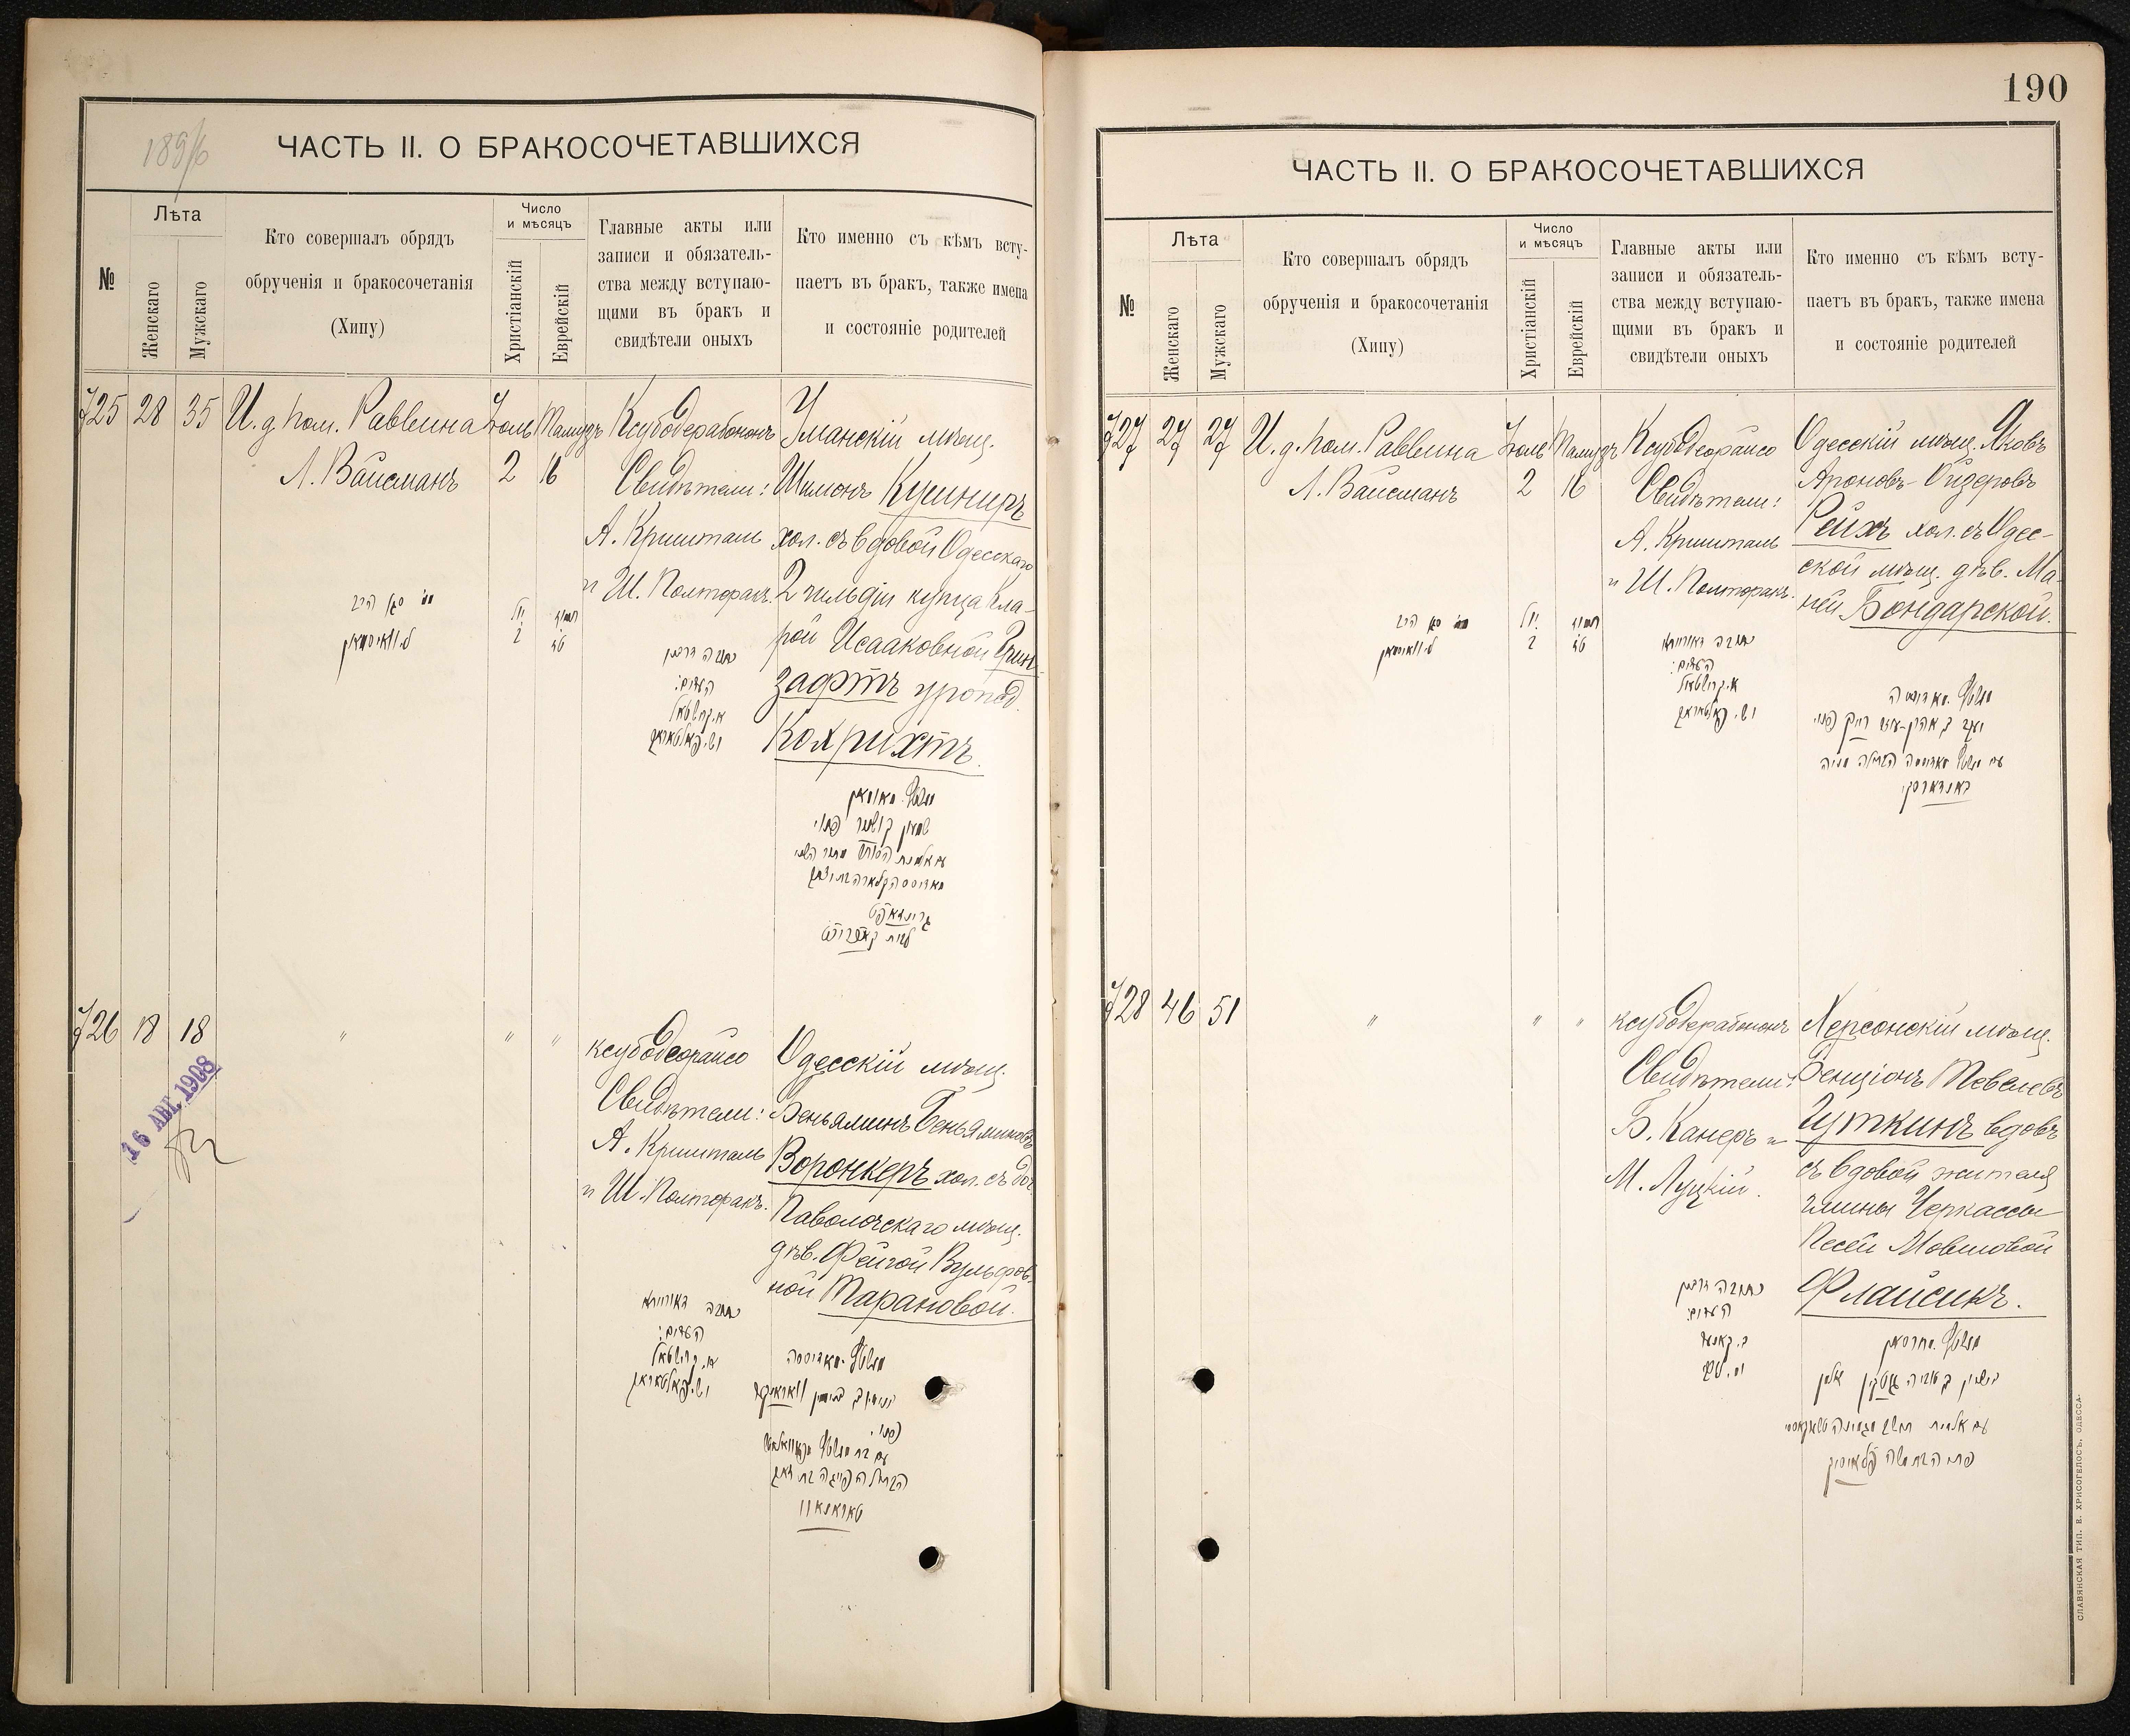 189
ЧАСТЬ II. О БРАКОСОЧЕТАВШИХСЯ
№
Лѣта
Женскаго
Мужскаго
Кто совершалъ обрядъ
обрученія и бракосочетанія
(Хипу)
Число
и мѣсяцъ
Христіанскій
Еврейскій
Главные акты или
записи и обязатель-
ства между вступаю-
щими въ бракъ и
свидѣтели оныхъ
Кто именно съ кѣмъ всту-
паетъ въ бракъ, также имена
и состояніе родителей
725 28 35
И. д. пом. Раввина
Л. Вайсманъ
Іюль
2
Тамузъ
16
Ксубодерабононъ
Свидѣтели:
А. Кришталь
и Ш. Полторакъ.
Уманскій мѣщ.
Шимонъ Кушниръ
хол. съ вдовой Одесскаго
2 гильдіи купца Кла-
рой Исааковной Грин-
зафтъ урожд.
Кохрихтъ.
ל. ווייסמאן
יול
2
תמוז
כתובה דרבנן
העדים:
א. קרישטאל
וש. פאלטאראק
726 18 18
" " "
16 АВГ. 1908
ксубодеорайсо
Свидѣтели:
А. Кришталь
и Ш. Полторакъ.
Одесскій мѣщ.
Беньяминъ Беньяминовъ
Воронкеръ хол. съ доч.
Паволочскаго мѣщ.
дѣв. Фейгой Вульфов-
ной Тарановой.
כתובה דאורייתא
העדים:
א. קרישטאל
וש. פאלטאראק
190
ЧАСТЬ II. О БРАКОСОЧЕТАВШИХСЯ
№
Лѣта
Женскаго
Мужскаго
Кто совершалъ обрядъ
обрученія и бракосочетанія
(Хипу)
Число
и мѣсяцъ
Христіанскій
Еврейскій
Главные акты или
записи и обязатель-
ства между вступаю-
щими въ бракъ и
свидѣтели оныхъ
Кто именно съ кѣмъ всту-
паетъ въ бракъ, также имена
и состояніе родителей
727 27 27
И. д. пом. Раввина
Л. Вайсманъ
Іюль
2
Тамузъ
16
Ксубодеорайсо
Свидѣтели:
А. Кришталь
и Ш. Полторакъ.
Одесскій мѣщ. Яковъ
Ароновъ-Ойзеровъ
Рейхъ хол. съ Одес-
ской мѣщ. дѣв. Ма-
ней Бондарской.
ל. ווייסמאן
יול
2
תמוז
כתובה דאורייתא
העדים:
א. קרישטאל
וש. פאלטאראק
באנדארסקי
728 46 51
" " "
ксубодерабононъ
Свидѣтели:
Б. Канеръ и
М. Луцкій.
Херсонскій мѣщ.
Бенціонъ Тевелевъ
Гуткинъ вдовъ
съ вдовой жителя
гмины Черкассы
Песей Мовшовой
Флайсикъ.
כתובה דרבנן
העדים:
ב. קאנער
СЛАВЯНСКАЯ ТИП. Е. ХРИСОГЕЛОСЪ, ОДЕССА.